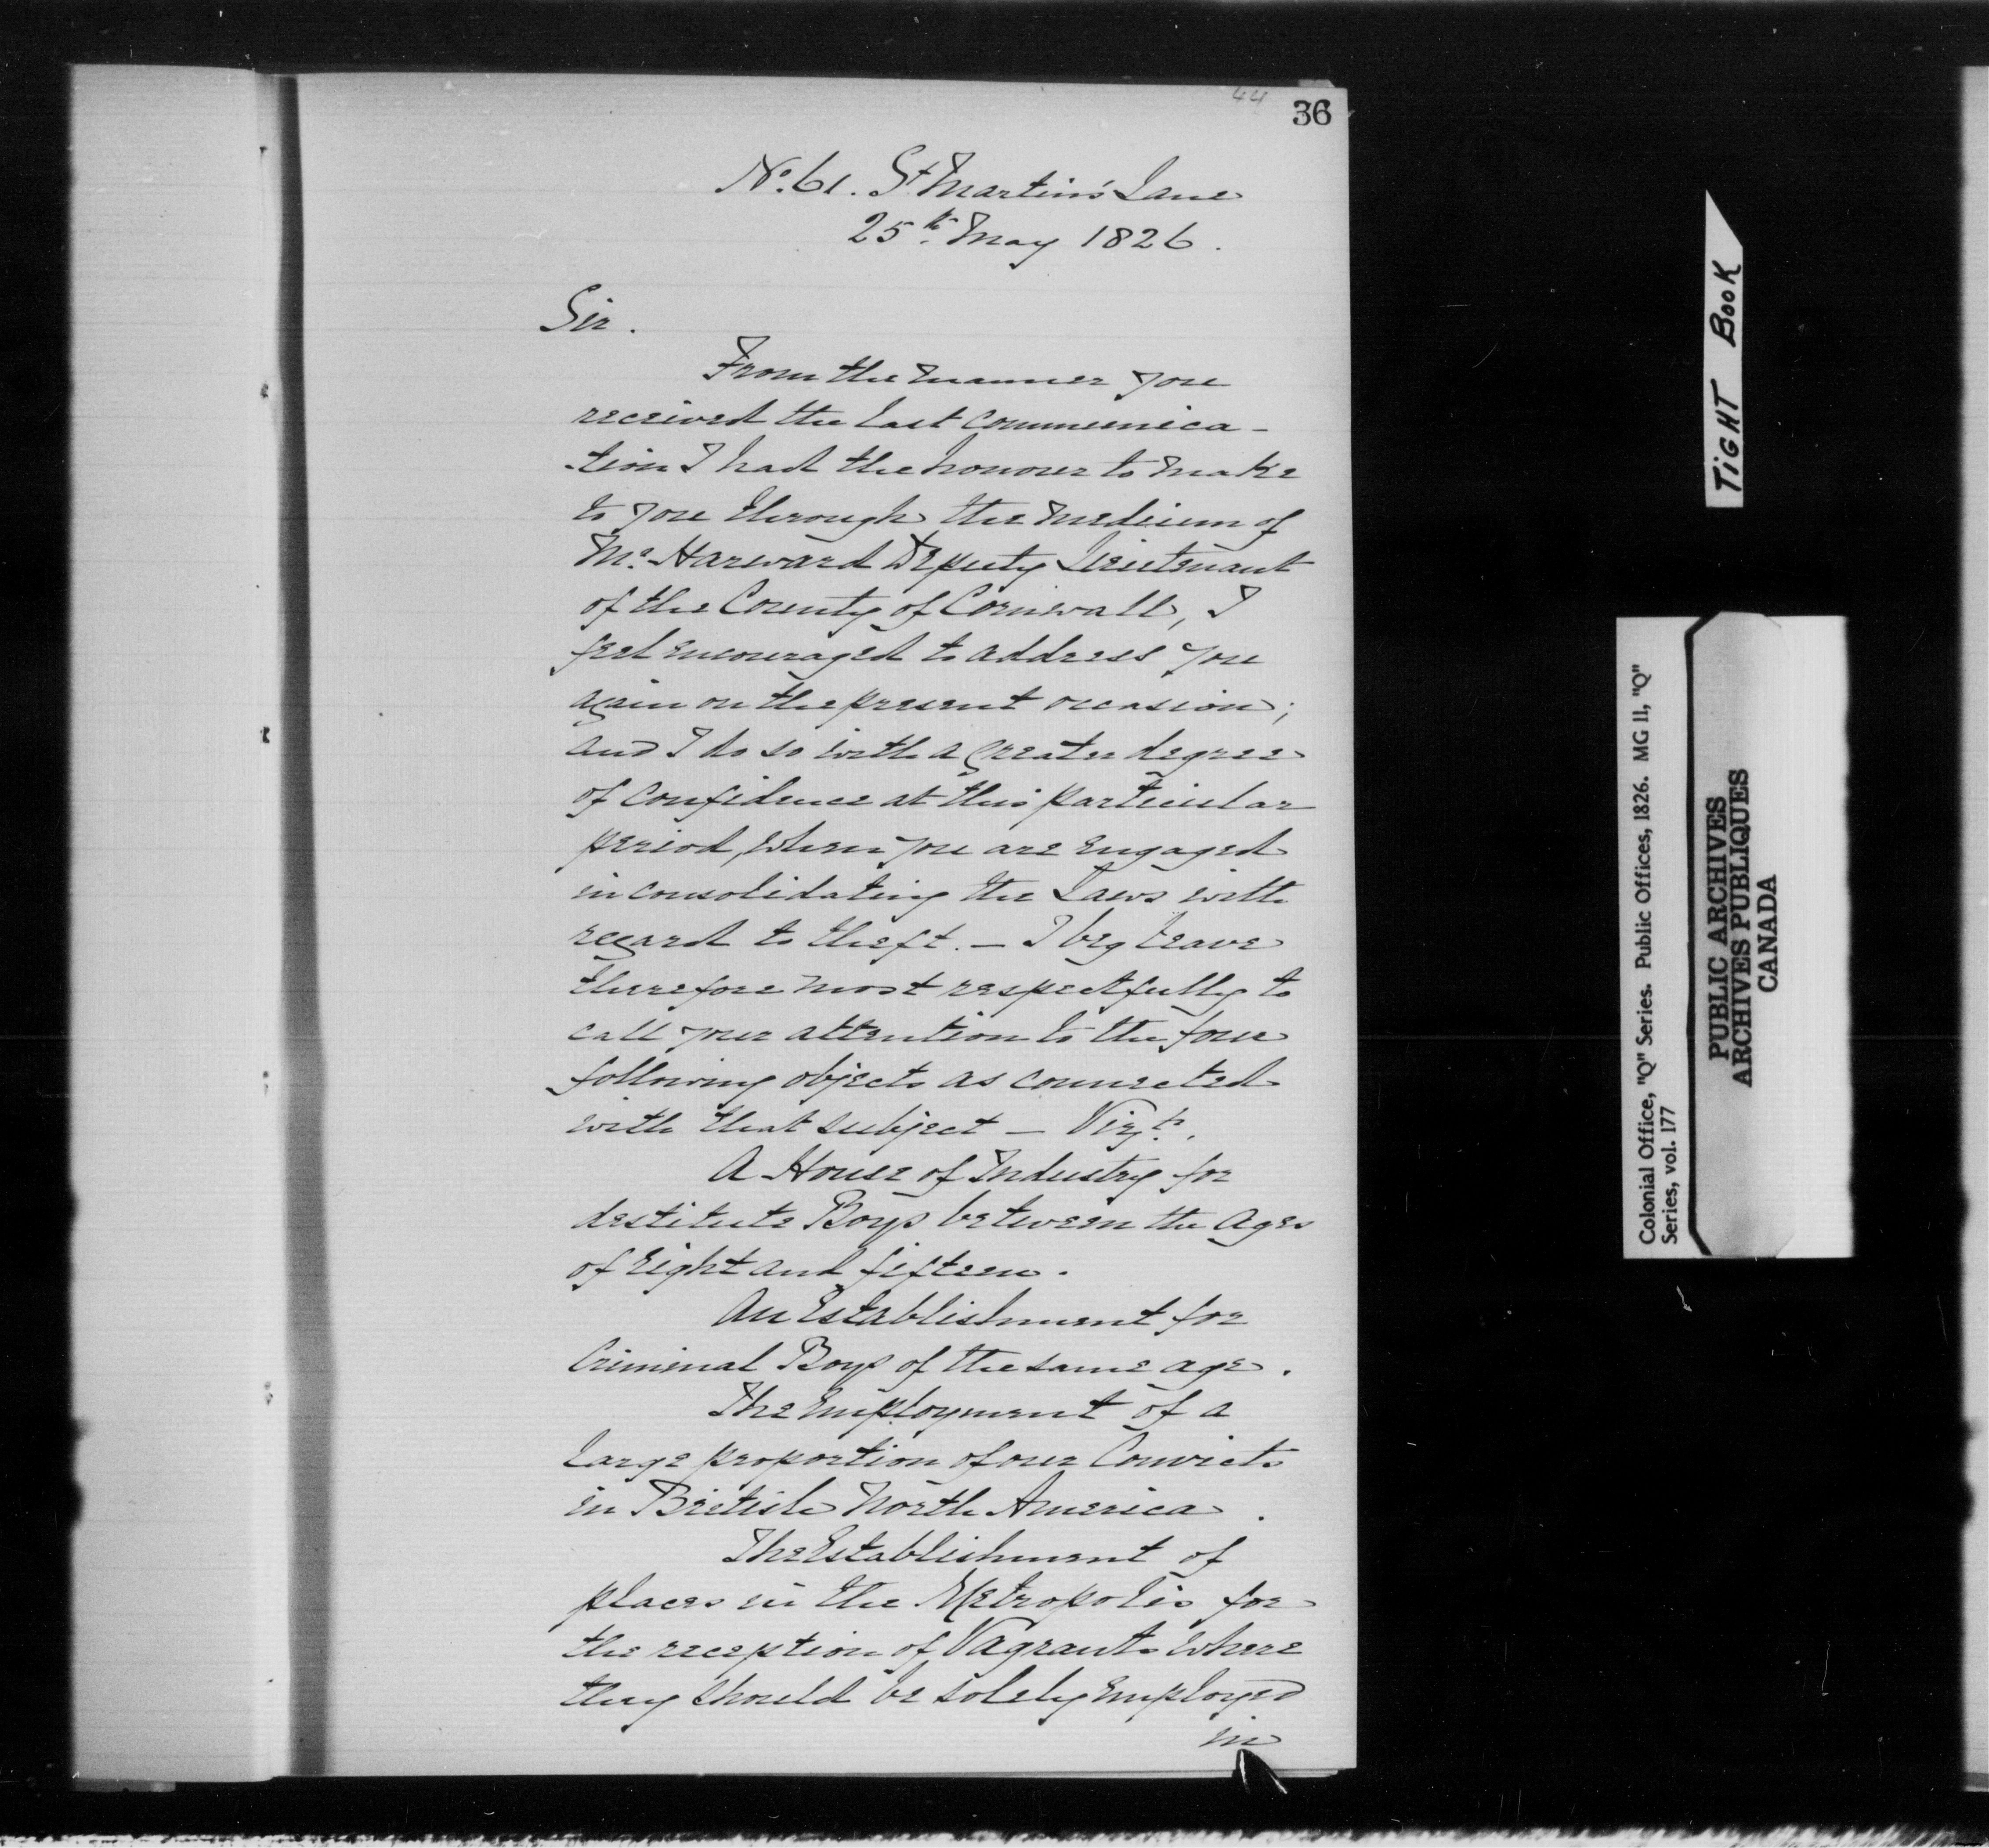 44
36
No. 61. St. Martin's Lane
25th. May 1826.
Sir.
From the manner you
received the last communica-
-tion I had the honour to make
to you through the medium of
Mr. Harward Deputy Lieutenant
of the County of Cornwall, I
feel encouraged to address you
again on the present occasion;
and I do so with a greater degree
of confidence at this particular
period, when you are engaged
in consolidating the Laws with
regard to theft. — I beg leave
therefore most respectfully to
call your attention to the four
following objects as connected
with that subject — Vizt.
A House of Industry for
destitute Boys between the ages
of eight and fifteen.
An Establishment for
Criminal Boys of the same age.
The Employment of a
large proportion of our Convicts
in British North America.
The Establishment of
places in the Metropolis for
the reception of Vagrants where
they should be solely employed
in
TIGHT BOOK
Colonial Office, "Q" Series. Public Offices, 1826. MG 11, "Q"
Series, vol. 177
PUBLIC ARCHIVES
ARCHIVES PUBLIQUES
CANADA